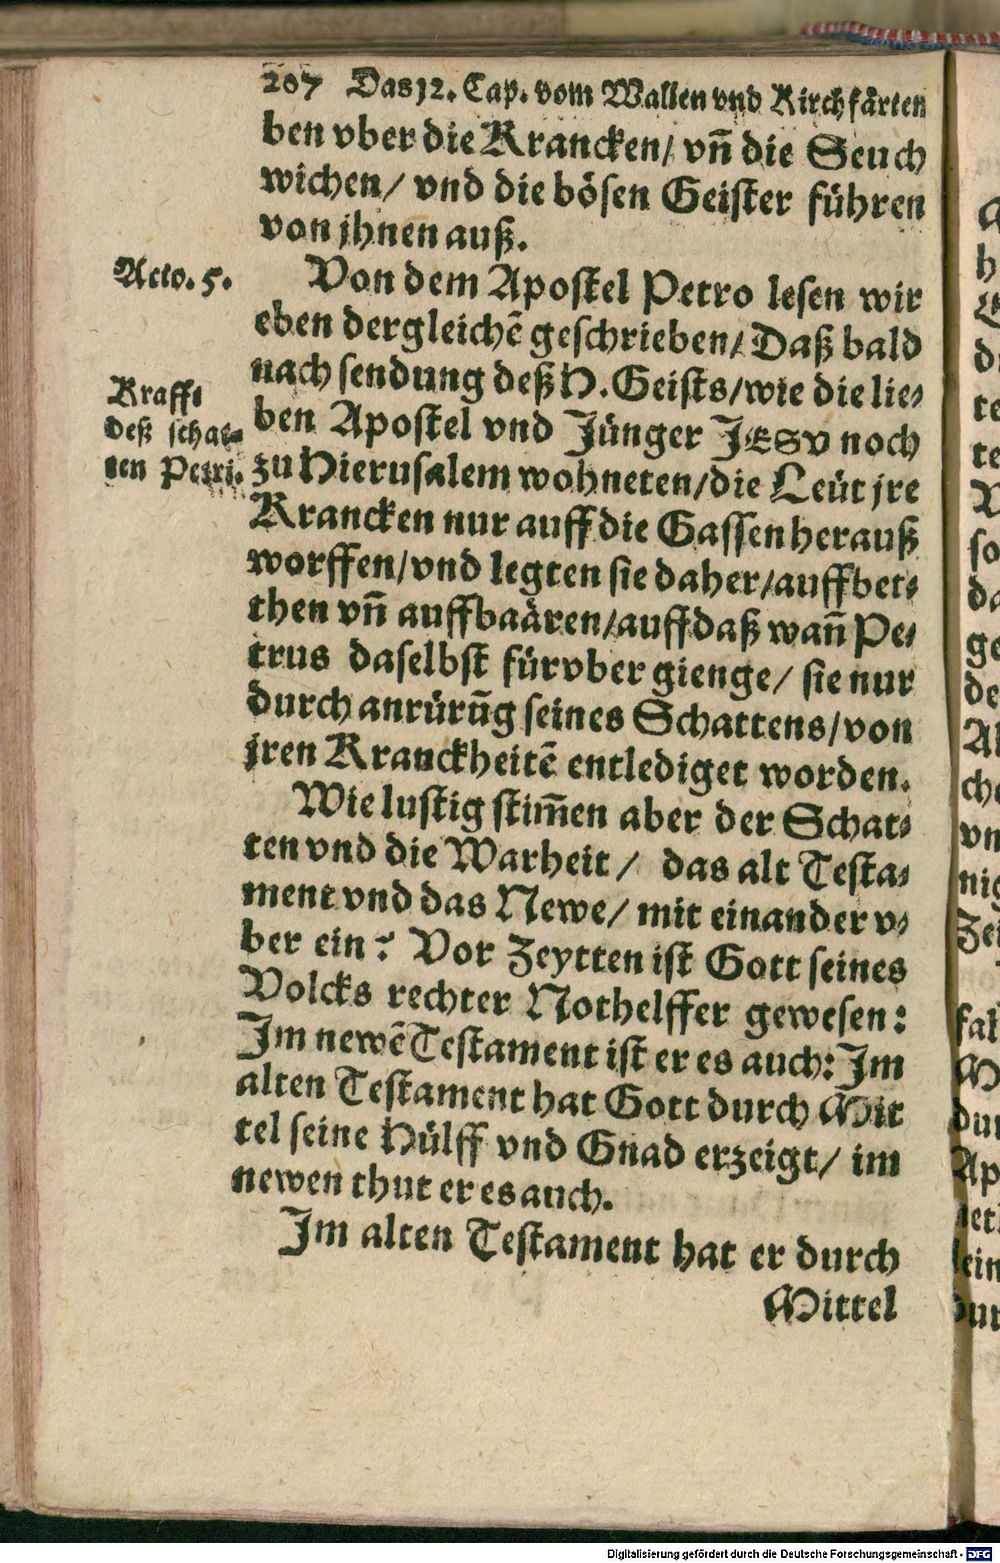 207 Das 12. Cap. vom Wallen vnd Kirchfärten
ben vber die Krancken/ vñ die Seuch
wichen/ vnd die bösen Geister führen
von jhnen auß.
Acto. 5.
Von dem Apostel Petro lesen wir
eben dergleichē geschrieben/ Daß bald
nach sendung deß H. Geists/ wie die lie⸗
Krafft
deß schat⸗
ten Petri.
ben Apostel vnd Jünger JESV noch
zu Hierusalem wohneten/ die Leüt jre
Krancken nur auff die Gassen herauß
worffen/ vnd legten sie daher/ auffbet⸗
then vñ auffbaären/ auff daß wañ Pe⸗
trus daselbst fürvber gienge/ sie nur
durch anrürūg seines Schattens/ von
jren Kranckheitē entlediget worden.
Wie lustig stim̄en aber der Schat⸗
ten vnd die Warheit/ das alt Testa⸗
ment vnd das Newe/ mit einander v⸗
ber ein? Vor Zeytten ist Gott seines
Volcks rechter Nothelffer gewesen:
Im newē Testament ist er es auch: Im
alten Testament hat Gott durch Mit
tel seine Hülff vnd Gnad erzeigt/ im
newen thut er es auch.
Im alten Testament hat er durch
Mittel
Digitalisierung gefördert durch die Deutsche Forschungsgemeinschaft - DFG